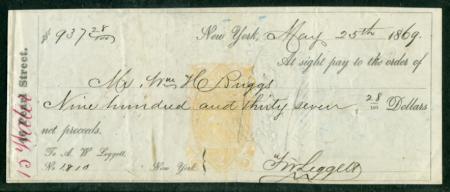 $937 28/100 New York, May 25th 1869.
At sight pay to the order of
Mr. Wm H Briggs
Nine hundred and thirty seven 28/100 Dollars
net proceeds.
To A. W. Leggett,
No. 1810 New York
Street.